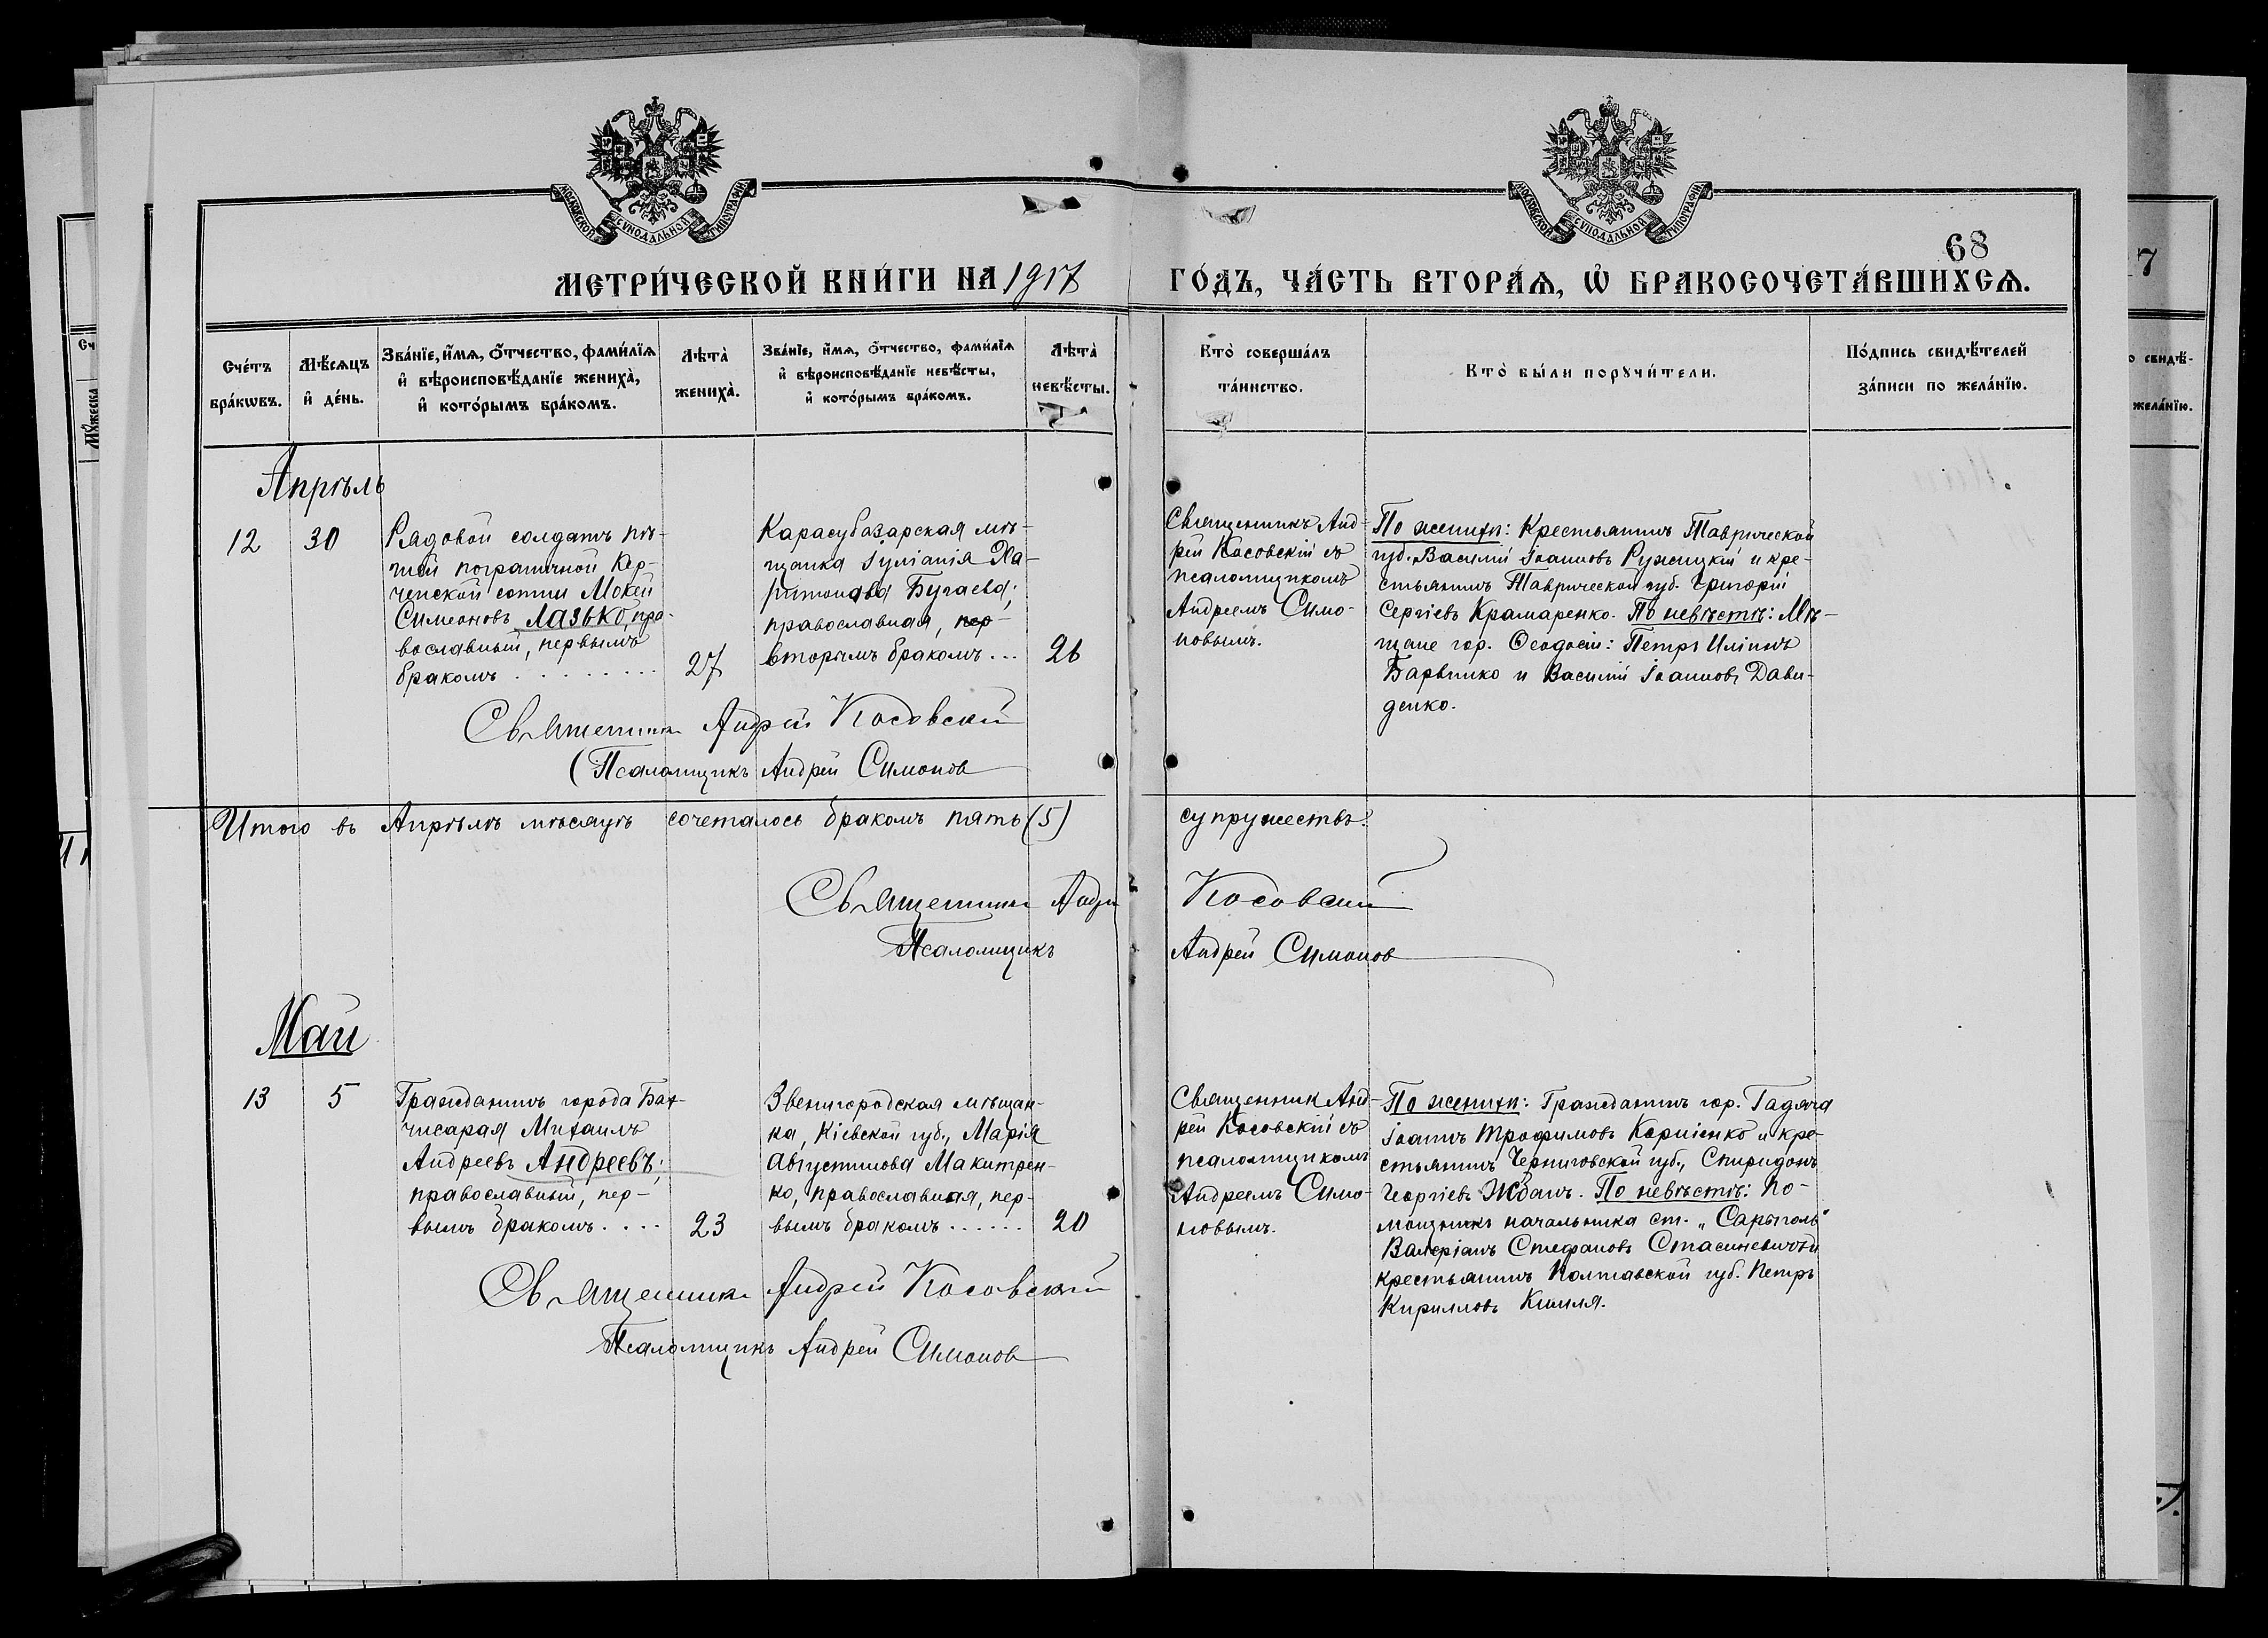 МОСКОВСКОЙ СѴНОДАЛЬНОЙ ТИПОГРАФІИ
МОСКОВСКОЙ СѴНОДАЛЬНОЙ ТИПОГРАФІИ
68
МЕТРИ́ЧЕСКОЙ КНИ́ГИ НА 1917
ГО́ДЪ, ЧА́СТЬ ВТОРА́Ѧ, Ѡ҆ БРАКОСОЧЕТА́ВШИХСѦ.
7
Сче́тъ
бра́кѡвъ.
Мѣ́сѧцъ
и҆ де́нь.
Зва́нїе, и҆́мѧ, ѻ҆́тчество, фами́лїѧ
и҆ вѣроисповѣ́данїе жениха̀,
и҆ кото́рымъ бра́комъ.
Лѣта̀
жениха̀.
Зва́нїе, и҆́мѧ, ѻ҆́тчество, фами́лїѧ
и҆ вѣроисповѣ́данїе невѣ́сты,
и҆ кото́рымъ бра́комъ.
Лѣта̀
невѣ́сты.
Кто̀ соверша́лъ
та́инство.
Кто̀ бы́ли порꙋчи́тели.
По́дпись свидѣ́телей
за́писи по жела́нїю.
Апрѣль
12
30
Рядовой солдатъ пѣ-
шей пограничной Кер-
ченской сотни Мокей
Симеоновъ ЛАЗЬКО, пра-
вославный, первымъ
бракомъ . . . . . . . . .
27
Карасубазарская мѣ-
щанка Іуліанія Ха-
ритонова Бугаева;
православная, пер-
вторымъ бракомъ ...
26
Священникъ Анд-
рей Косовскій съ
псаломщикомъ
Андреемъ Симо-
новымъ.
По женихѣ: Крестьянинъ Таврической
губ. Василій Іоанновъ Ружицкій и кре-
стьянинъ Таврической губ. Григорій
Сергіевъ Крамаренко. По невѣстѣ: Мѣ-
щане гор. Ѳеодосіи: Петръ Иліинъ
и Василій Іоанновъ Дави-
денко.
Священникъ Андрей Косовский
Псаломщикъ Андрей Симонов
Итого въ Апрѣлѣ мѣсяцѣ сочеталось бракомъ пять (5)
супружествъ.
Священникъ Андрей Косовский
Псаломщикъ Андрей Симонов
Май
13
5
Гражданинъ города Бах-
чисарая Михаилъ
Андреевъ Андреевъ;
православный, пер-
вымъ бракомъ. . . .
23
Звенигородская мѣщан-
ка, Кіевской губ., Марія
Августинова Макитрен-
ко, православная, пер-
вымъ бракомъ ......
20
Священник Анд-
рей Косовскій съ
псаломщикомъ
Андреемъ Симо-
новымъ.
По женихѣ: Гражданинъ гор. Гадяча
Іоаннъ Трофимовъ Корніенко и кре-
стьянинъ Черниговской губ., Спиридонъ
Георгіевъ Жданъ. По невѣстѣ: По-
мощникъ начальника ст. „Сарыголь"
Валеріанъ Стефановъ Стасиневичъ и
крестьянинъ Полтавской губ. Петръ
Кирилловъ
Священникъ Андрей Косовский
Псаломщикъ Андрей Симонов